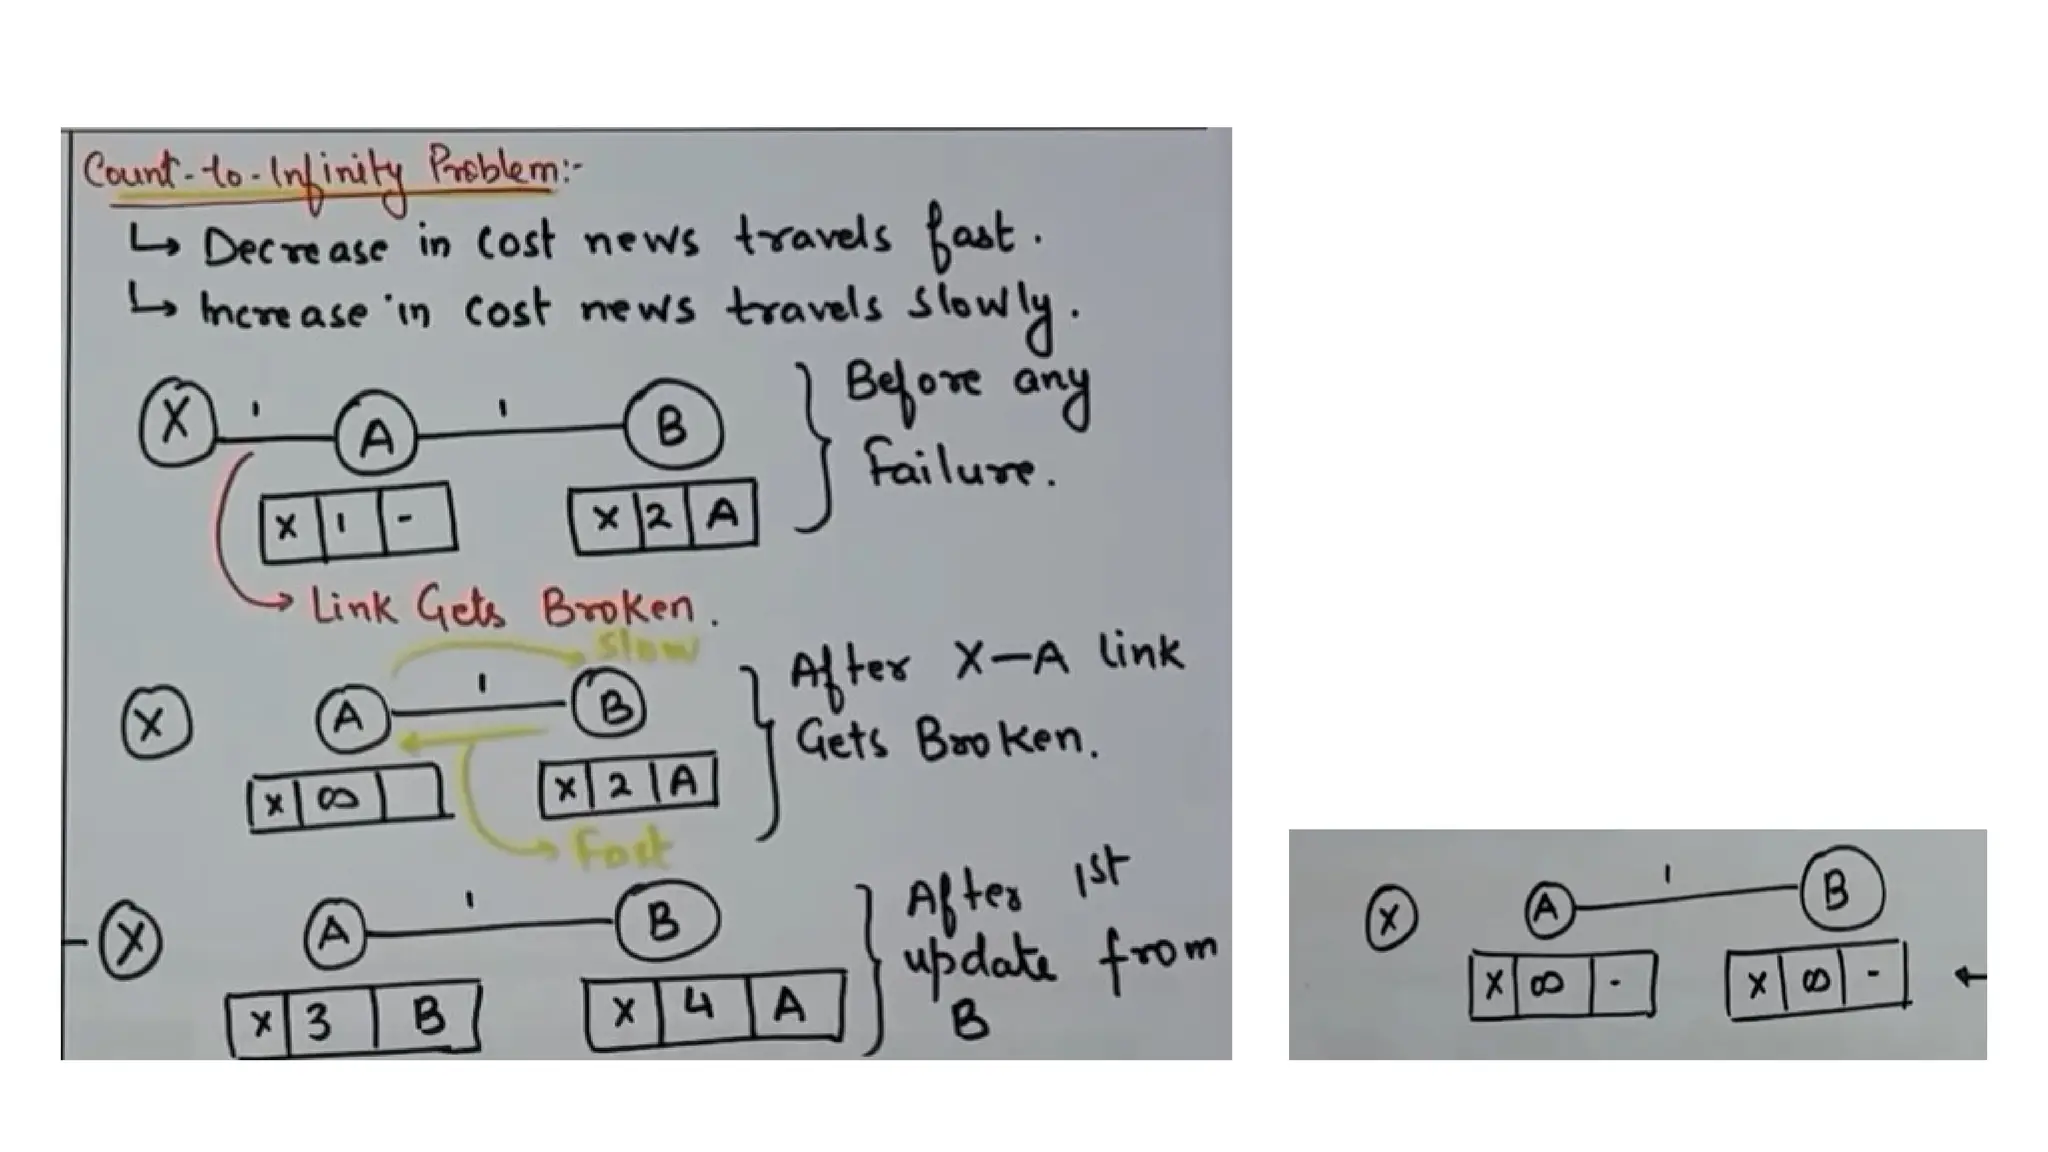 Count-to-Infinity Problem:-
↳ Decrease in cost news travels fast.
↳ Increase in cost news travels slowly.
X 1 A 1 B
X | 1 | -
X | 2 | A
Before any
Failure.
Link Gets Broken.
Slow
X A 1 B
X | ∞ |
X | 2 | A
After X-A link
Gets Broken.
Fast
X A 1 B
X | 3 | B
X | 4 | A
After 1st
update from
B
X A 1 B
X | ∞ | -
X | ∞ | -